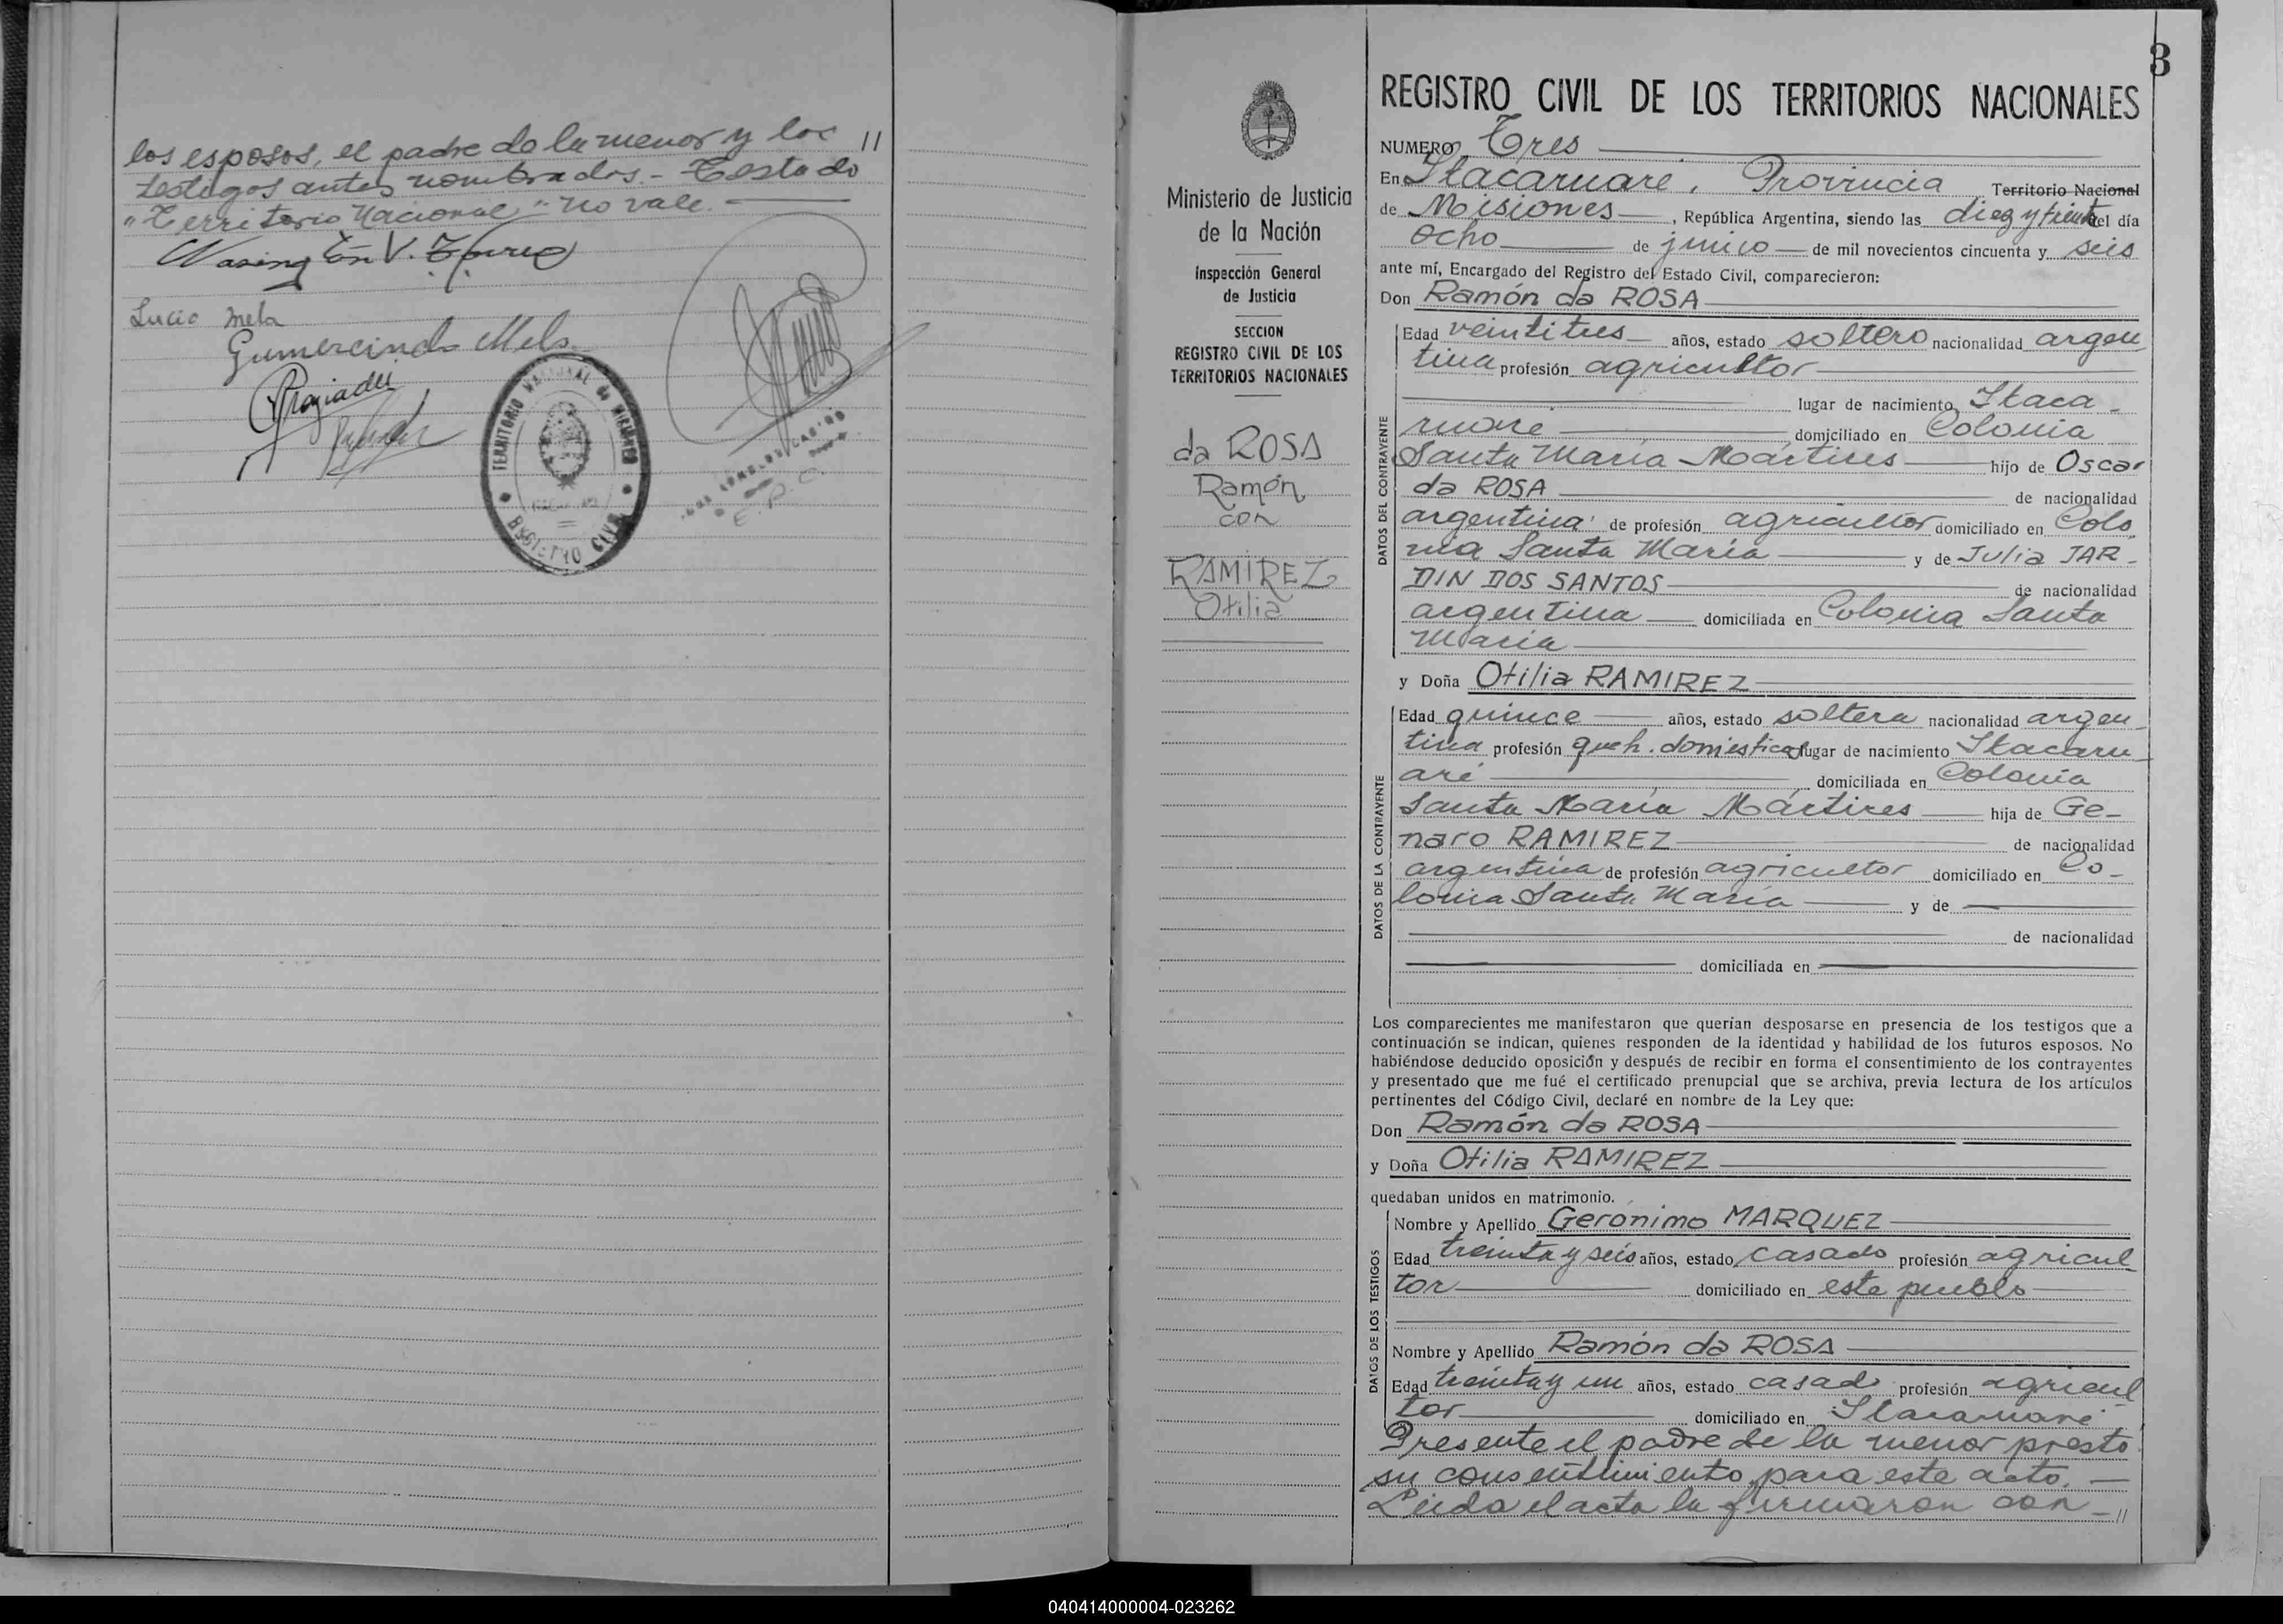 los esposos, el padre de la menor y los //
testigos antes nombrados.- Testado
"Territorio Nacional" no vale.
Lucio Melo
Gumercindo Melo
TERRITORIO NACIONAL de MISIONES
REGISTRO CIVIL
E. R. C.
3
Ministerio de Justicia
de la Nación
Inspección General
de Justicia
SECCION
REGISTRO CIVIL DE LOS
TERRITORIOS NACIONALES
da ROSA
Ramón
con
RAMIREZ
Otilia
REGISTRO CIVIL DE LOS TERRITORIOS NACIONALES
NUMERO Tres
En Itacaruaré, Provincia Territorio Nacional
de Misiones, República Argentina, siendo las diez y treinta del día
ocho de junio de mil novecientos cincuenta y seis
ante mí, Encargado del Registro del Estado Civil, comparecieron:
Don Ramón da ROSA
DATOS DEL CONTRAYENTE
Edad veintitres años, estado soltero nacionalidad argen
tina profesión agricultor
lugar de nacimiento Itaca-
ruare domiciliado en Colonia
Santa María Mártires hijo de Oscar
da ROSA de nacionalidad
argentina de profesión agricultor domiciliado en Colo
nia Santa María y de Julia JAR-
DIN DOS SANTOS de nacionalidad
argentina domiciliada en Colonia Santa
María
y Doña Otilia RAMIREZ
DATOS DE LA CONTRAYENTE
Edad quince años, estado soltera nacionalidad argen-
tina profesión queh. domesticos lugar de nacimiento Itacaru-
aré domiciliada en Colonia
Santa María Mártires hija de Ge-
naro RAMIREZ de nacionalidad
argentina de profesión agricultor domiciliado en Co-
lonia Santa María y de
de nacionalidad
domiciliada en
Los comparecientes me manifestaron que querían desposarse en presencia de los testigos que a
continuación se indican, quienes responden de la identidad y habilidad de los futuros esposos. No
habiéndose deducido oposición y después de recibir en forma el consentimiento de los contrayentes
y presentado que me fué el certificado prenupcial que se archiva, previa lectura de los artículos
pertinentes del Código Civil, declaré en nombre de la Ley que:
Don Ramón da ROSA
y Doña Otilia RAMIREZ
quedaban unidos en matrimonio.
DATOS DE LOS TESTIGOS
Nombre y Apellido Gerónimo MARQUEZ
Edad treinta y seis años, estado casado profesión agricul
tor domiciliado en este pueblo
Nombre y Apellido Ramón da ROSA
Edad treinta y un años, estado casado profesión agricul
tor domiciliado en Itacaruaré
Presente el padre de la menor prestó
su consentimiento para este acto.
Leída el acta la firmaron con //
040414000004-023262